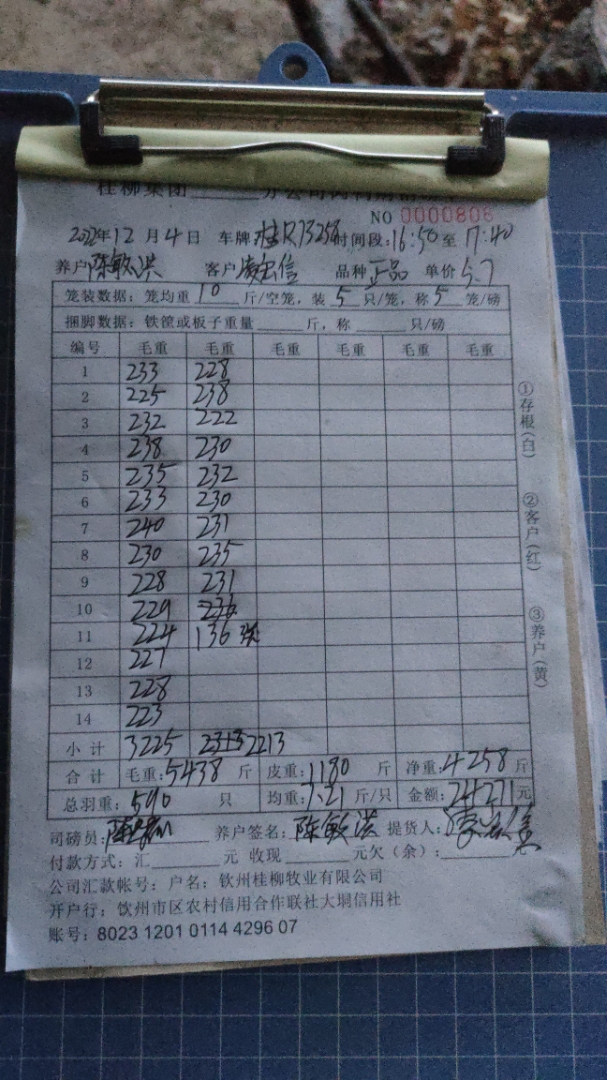 桂柳集团
NO 0000806
2022年12月4日 车牌 桂R73258 时间段:16:50至17:40
养户陈敏洪 客户 品种 正品 单价 5.7
笼装数据: 笼均重 10 斤/空笼, 装 5 只/笼, 称 5 笼/磅
捆脚数据: 铁筐或板子重量 斤, 称 只/磅
编号 毛重 毛重 毛重 毛重 毛重 毛重
1 233 228
2 225 238
3 232 222
4 238 230
5 235 232
6 233 230
7 240 231
8 230 235
9 228 231
10 229
11 224 136
12 227
13 228
14 223
小计 3225 2213
合计 毛重:5438 斤 皮重:1180 斤 净重:4258 斤
总羽重: 590 只 均重: 7.21 斤/只 金额: 24271 元
司磅员: 养户签名: 陈敏洪 提货人:
付款方式: 汇 元 收现 元欠(余): 元
公司汇款帐号: 户名: 钦州桂柳牧业有限公司
开户行: 钦州市区农村信用合作联社大垌信用社
账号: 8023 1201 0114 4296 07
①存根(白)
②客户(红)
③养户(黄)